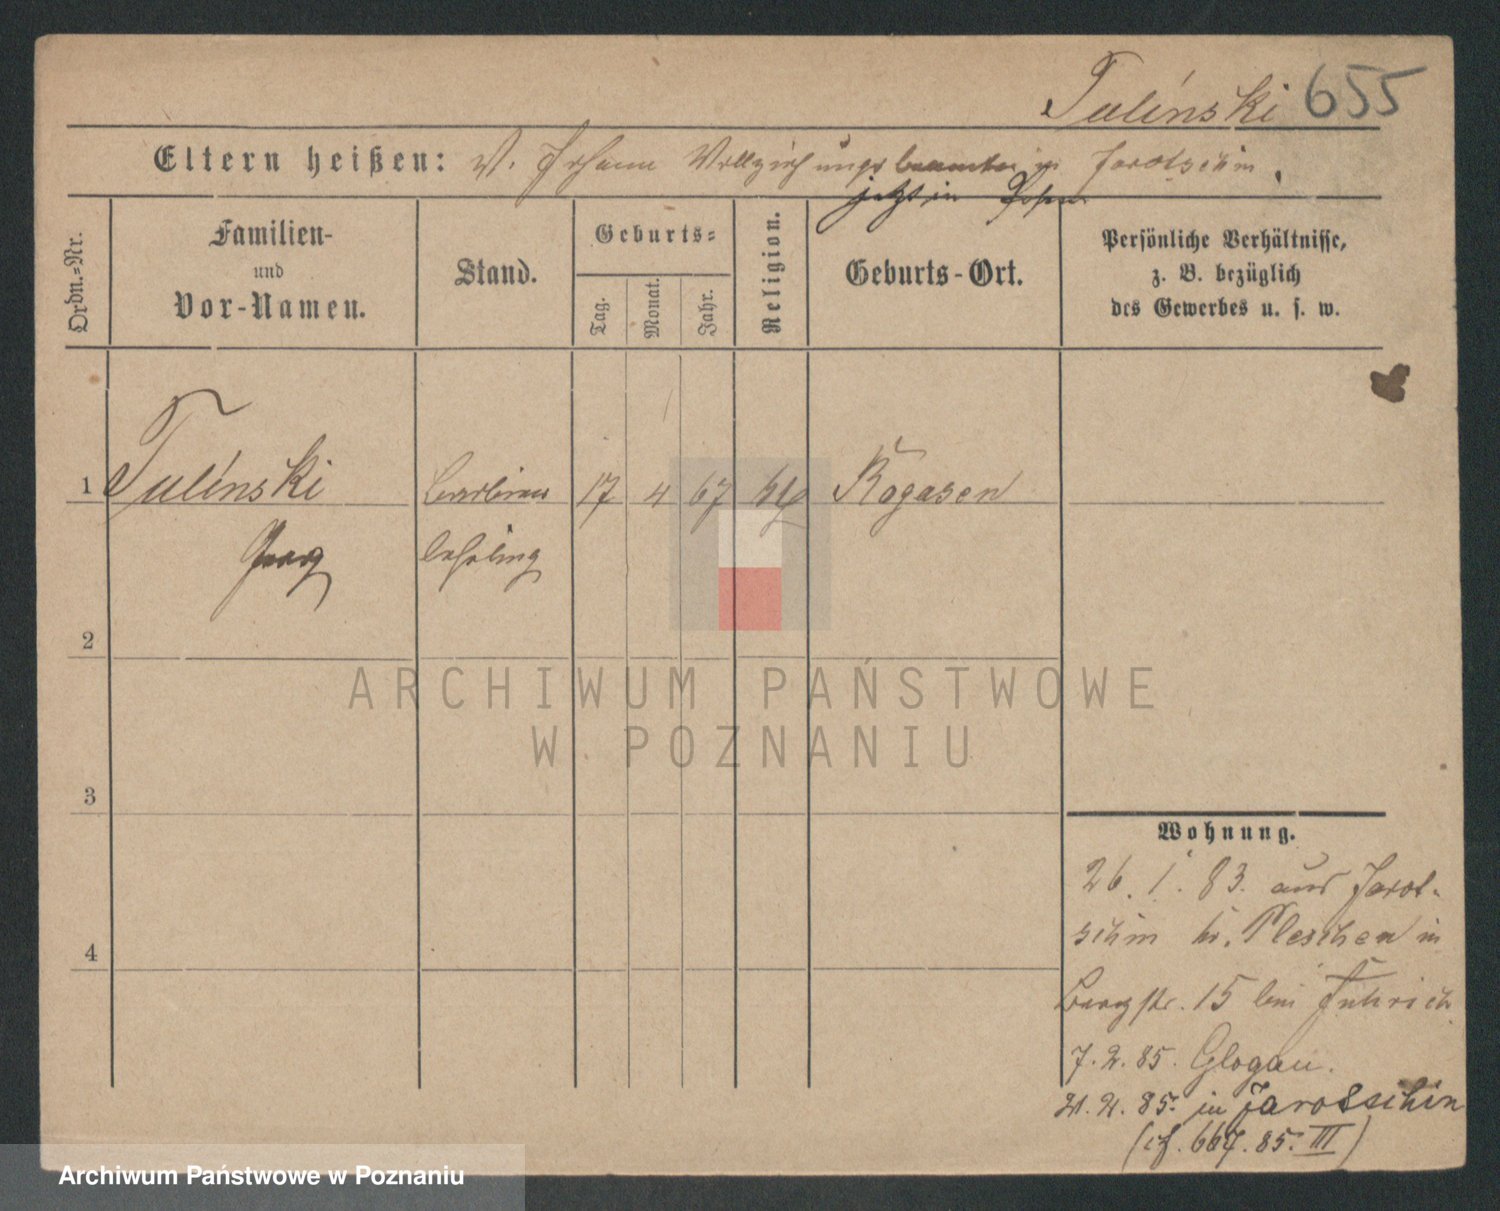 Tulinski 655
Eltern heißen: V. Johann Vollziehungsbeamter in Jarotschin,
jetzt in Posen
Ordn.-Nr.
Familien-
und
Vor-Namen.
Stand.
Geburts-
Tag.
Monat.
Jahr.
Religion.
Geburts-Ort.
Persönliche Verhältnisse,
z. B. bezüglich
des Gewerbes u. s. w.
1 Tulinski Barbier 17 4 67 Rogasen
Georg Lehrling
2
3
4
Wohnung.
26. 1. 83. aus Jarot-
schin Kr. Pleschen in
Bergstr. 15 bei Führich
7. 2. 85. Glogau.
21. 2. 85. in Jarotschin
(cf. 667. 85. III)
ARCHIWUM PAŃSTWOWE
W POZNANIU
Archiwum Państwowe w Poznaniu